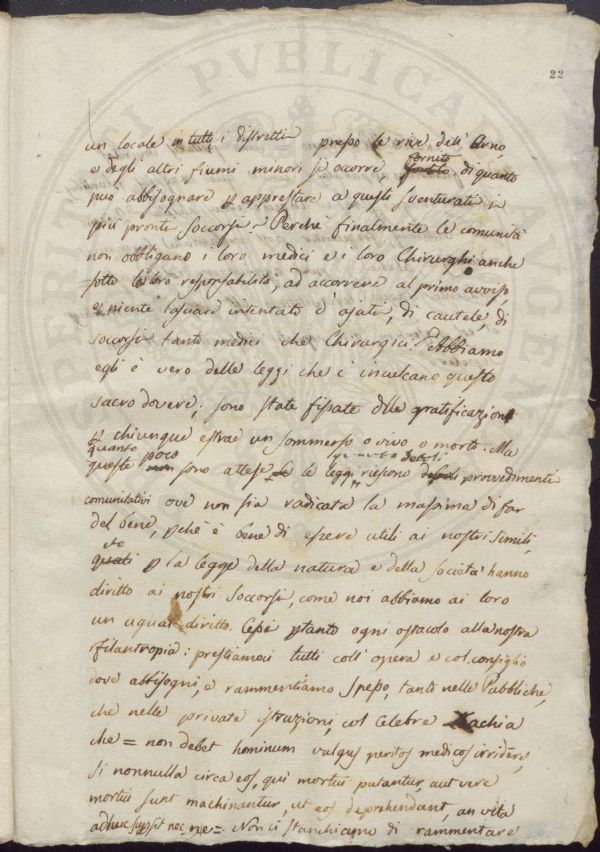 22
un locale in tutti i distretti presso le rive dell' Arno,
e degli altri fiumi minori se occorre, fornito di quanto
può abbisognare p apprestare a questi sventurati i
più pronti soccorsi. Perchè finalmente le comunità
non obbligano i loro medici e i loro Chirurghi anche
sotto la loro responsabilità, ad accorrere al primo avviso,
e niente lasciare intentato d'ajuti, di cautele, di
soccorsi tanto medici che Chirurgici? Abbiamo
egli è vero delle leggi che c'inculcano questo
sacro dovere: sono state fissate delle gratificazioni
p chiunque estrae un sommerso o vivo o morto. Ma
quanto poco deboli
queste non sono attese, e le leggi riescono deboli provvedimenti
comunitativi ove non sia radicata la massima di far
del bene, pchè è bene di essere utili ai nostri simili,
che
quali p la legge della natura e della società hanno
diritto ai nostri soccorsi, come noi abbiamo ai loro
un ugual diritto. Cessi ptanto ogni ostacolo alla nostra
filantropia: prestiamoci tutti coll' opera e col consiglio
dove abbisogni, e rammentiamo spesso, tanto nelle Pubbliche,
che nelle private istruzioni, col celebre Zachia
che = non debet hominum vulgus peritos medicos irridere,
si nonnulla circa eos, qui mortui putantur, aut vere
mortui sunt machinantur, ut eos deprehendant, an vita
adhuc supsit nec ne =. Non ci stanchiamo di rammentare